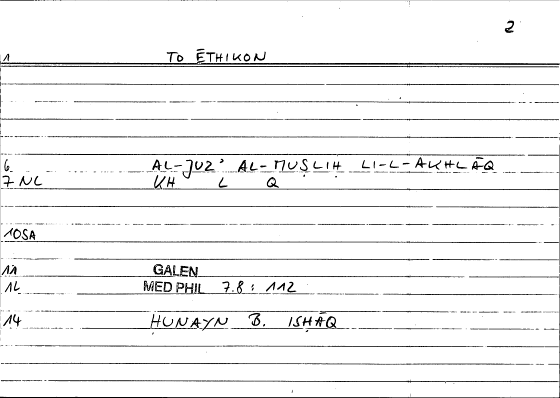 2
1 TO ĒTHIKON
6 AL-JUZʾ AL-MUṢLIḤ LI-L-AKHLĀQ
7 NL KH L Q
10SA
11 GALEN
12 MED PHIL 7.8 : 112
14 ḤUNAYN B. ISḤĀQ